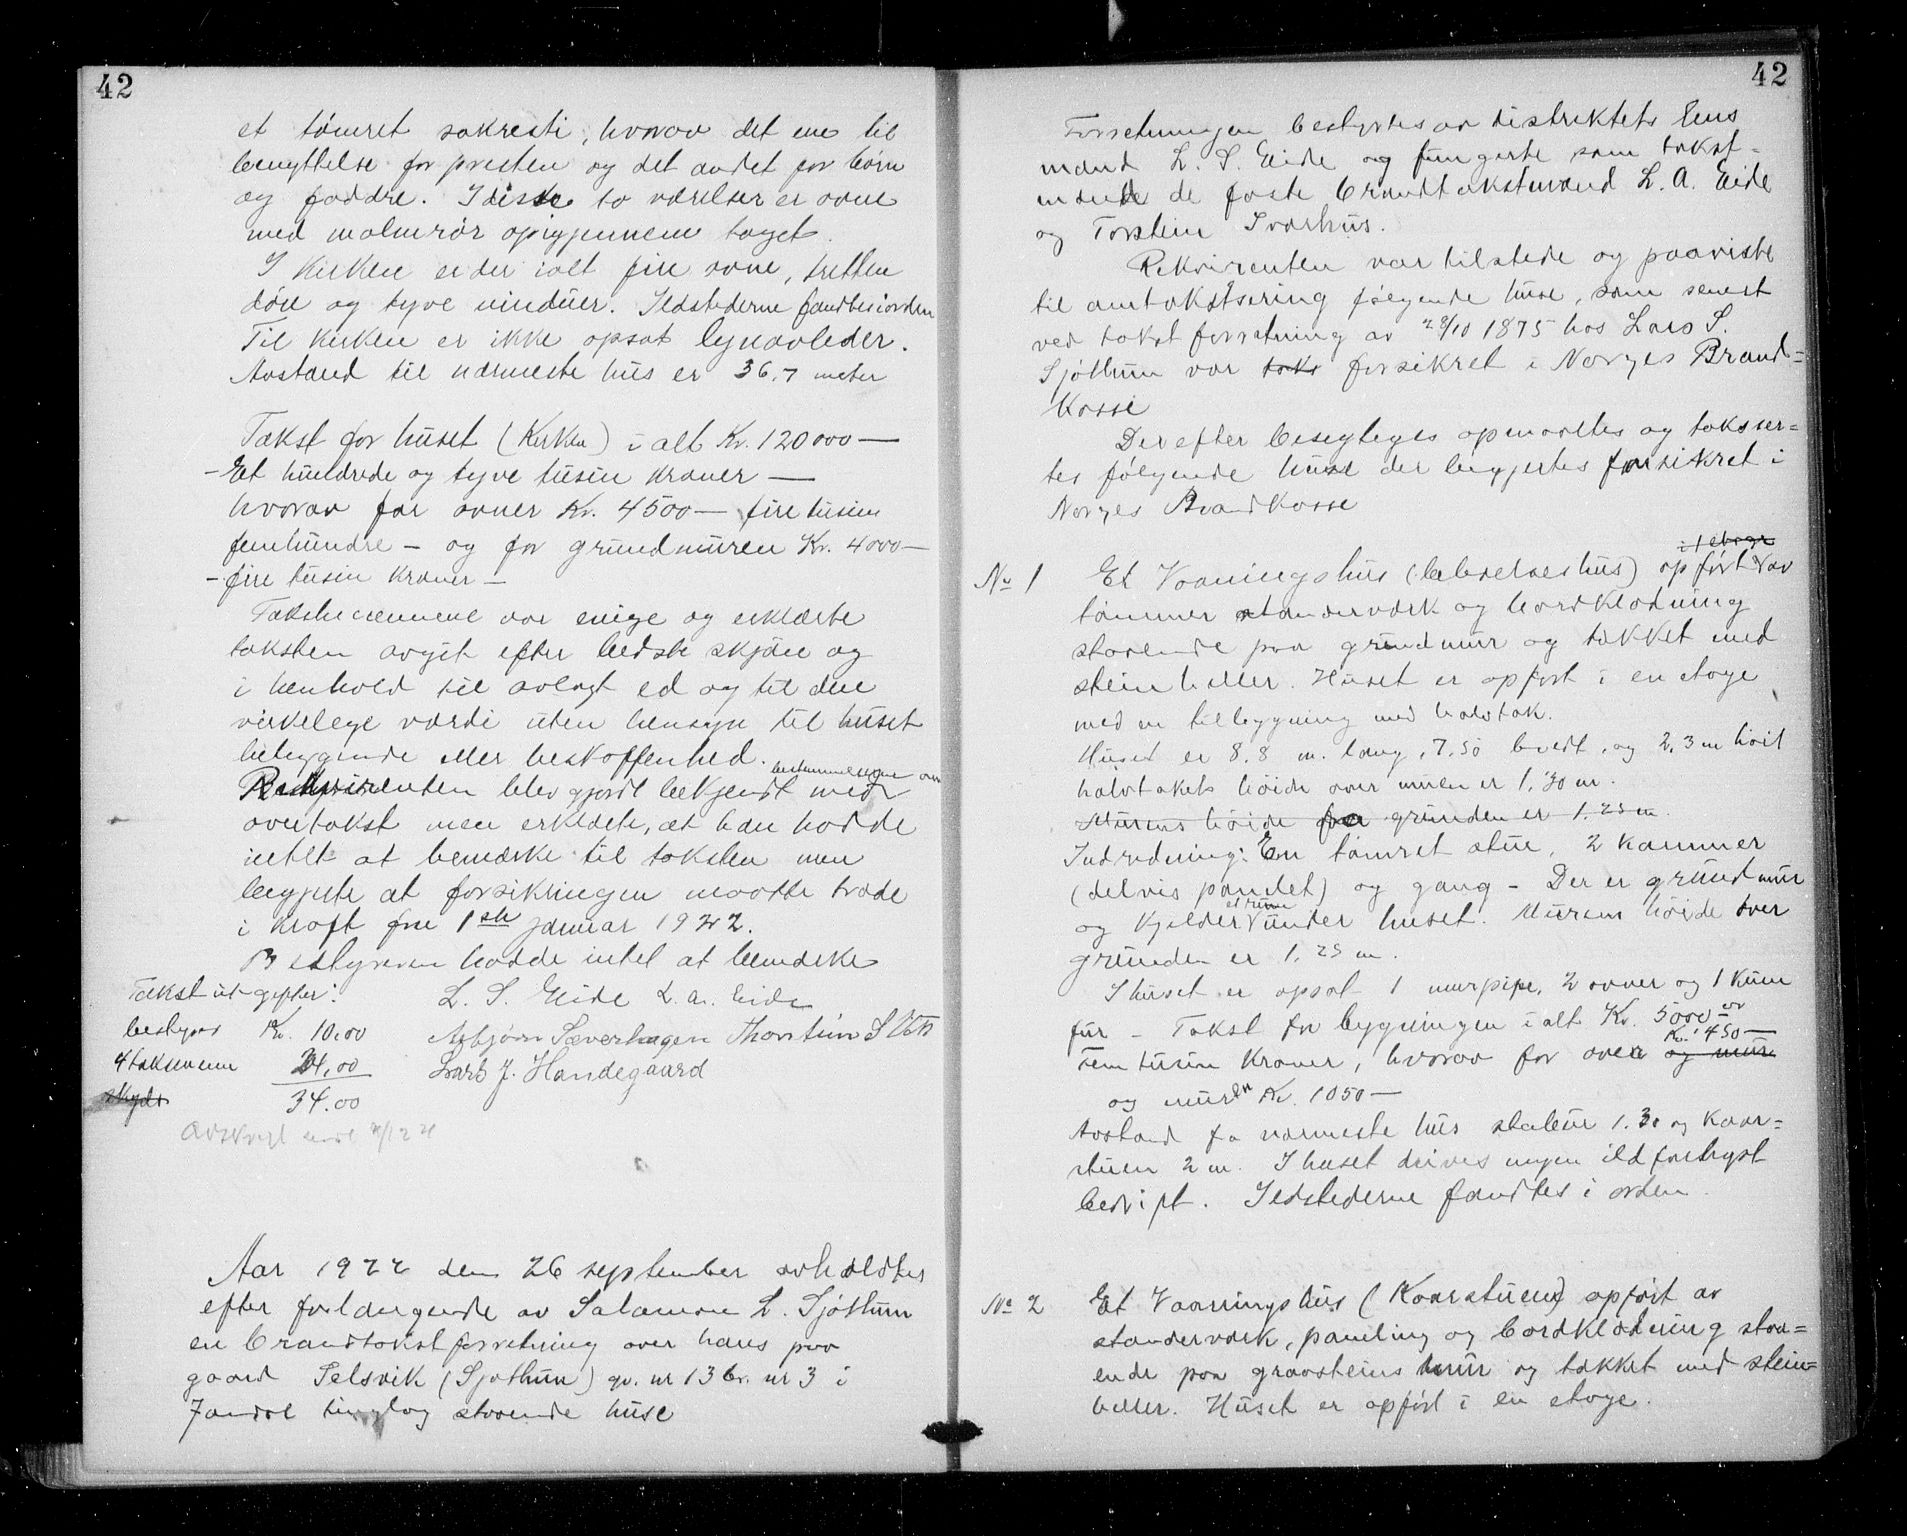 42
et tømret sakresti, hvorav det ene til
benyttelse for presten og det andet for børn
og faddre. I disse to værelser er ovne
med malmrør opigjennem taget.
I Kirken er der ialt fire ovne, tretten
døre og tyve vinduer. Ildstederne fandtes i orden
Til Kirken er ikke opsat lynavleder.
Avstand til nærmeste hus er 36,7 meter
Takst for huset (Kirken) i alt Kr. 120000 —
- Et hundrede og tyve tusin kroner —
hvorav for ovner Kr. 4500 — fire tusin
femhundre — og for grundmuren Kr. 4000 —
- fire tusin kroner —
Takstmænnene var enige og erklærte
taksten avgit efter bedste skjøn og
i henhold til avlagt ed og til den
virkelege værdi uten hensyn til huset
beliggende eller beskaffenhed.
bestemmelserne om
Rekvirenten blev gjordt bekjendt med
overtakst men erklærte, at han hadde
intet at bemærke til taksten men
begjerte at forsikringen maatte træde
i kraft fra 1ste januar 1922.
Bestyreren hadde intet at bemærke
Takstutgifter:
L. S. Eide L. A. Eide
bestyrer Kr. 10,00
Asbjørn Sæverhagen Thorstein S
4 takstmenn 24,00
Lars J. Handegaard
skyds
34.00
Avskrift sendt
Aar 1922 den 26 september avholdtes
efter forlangende av Salamon L. Sjøthun
en brandtakstforretning over hans paa
gaard Selsvik (Sjøthun) gr. nr 13 br. nr 3 i
Jondal tinglag staaende huse
42
Forretningen bestyrtes av distriktets lens
mand L. S. Eide og fungerte som takst-
mænd de faste brandtakstmænd L. A. Eide
og Torstein Ivarhus.
Rekvirenten var tilstede og paaviste
til omtaksering følgende huse, som senest
ved takstforretning av 28/10 1875 hos Lars S.
Sjøthun var taks forsikret i Norges Brand-
kasse
Derefter besigtiges opmaaltes og takser-
tes følgende huse der begjertes forsikret i
Norges Brandkasse
i 1 etage
No 1 Et Vaaningshus (beboelseshus) opført av
tømmer standerværk og bordklædning
staaende paa grundmur og tækket med
steinheller. Huset er opført i en etage
med en tilbygning med halvtak.
Huset er 8,8 m. lang, 7.50 bredt, og 2,3 m høit
halvtakets høide over muren er 1.30 m.
Murens høide fra grunden er 1.25 m.
Indredning: En tømret stue, 2 kammer
(delvis panelet) og gang — Der er grundmur
et rum
og kjelder under huset. Murens høide over
grunden er 1.25 m.
I huset er opsat 1 murpipe, 2 ovner og 1 kum
fur — Takst for bygningen i alt Kr. 5000 —
Kr. 450 —
Fem tusin kroner, hvorav for oven og mur
og muren Kr. 1050 —
Avstand fra nærmeste hus staleur 1.30 og kaar-
stuen 2 m. I huset drives ingen ildfarligst
bedrift. Ildstederne fandtes i orden.
No 2 Et Vaaningshus (Kaarstuen) opført av
standerværk, paneling og bordklædning staa-
ende paa graasteins mur og tækket med stein-
heller. Huset er opført i en etage.